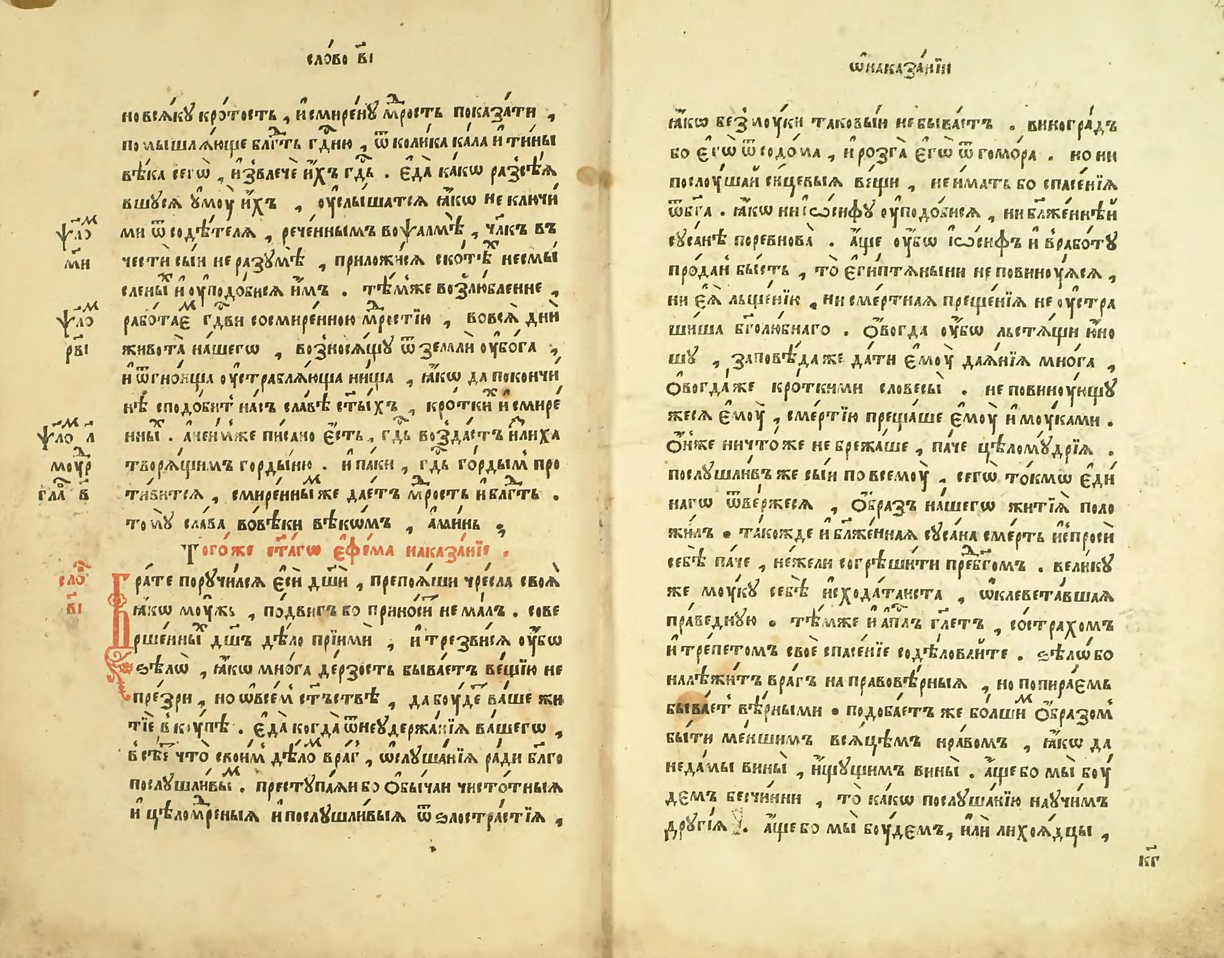 сло́во в҃і
но всѧ́ку кро́тость , и҆ смире́ну мⷣрость показа́ти ,
помышлѧ́юще бл҃гть гдⷭ҇ню , ѿ коли́ка ка́ла и҆ ти́ны
вѣ́ка сегѡ̀ , и҆звлечѐ и҆́хъ гдⷭ҇ь . є҆да̀ ка́кѡ разсѣ́ѧ
вшуѧ ᲂу҆мо́у и҆́хъ , ᲂу҆слы́шатсѧ ꙗ҆́кѡ не ключи́
ми ѿ содѣ́телѧ , рече́ннымъ во ѱалмѣ̀ , чл҃къ въ
че́сти сы́и не разумѣ̀ , приложи́сѧ скотѣⷯ несмы́
сленыⷯ и҆ ᲂу҆подо́бисѧ и҆̀мъ . тѣ́мже возлю́бленне ,
ѱлоⷨ
м҃и
рабо́тає гдⷭ҇ви со смире́нною мⷣростїю , во всѧ̀ дни̑
живота̀ на́шегѡ , возносѧ́щу ѿ землѝ ᲂу҆бо́га ,
и҆ ѿ гно́ища ᲂу҆страблѧ́юща ни́ща , ꙗ҆́кѡ да покончи́
ѱлоⷨ
рв҃і
нѣ̀ сподо́бит на́съ сла́вѣ ст҃ы́хъ , кро́ткиⷯ и҆ смире́
нныⷯ . а҆ чеи́мже пи́сано є҆́сть , гдⷭ҇ь возда́стъ и҆зли́ха
творѧ́щимъ горды́ню . и҆ па́ки , гдⷭ҇ь го́рдым про
ти́витсѧ , смире́нныⷨ же дае́тъ мⷣрость и҆ бл҃гть .
тому̀ сла́ва во вѣ́ки вѣкѡ́мъ , а҆ми́нь ,
ѱлоⷨ л
моуⷣр
глаⷡ в
Того́же ст҃а́гѡ є҆фре́ма наказа́нїе .
слоⷡ
в҃і
Бра́те поручи́лсѧ є҆сѝ дш҃и , препоѧ́ши чре́сла своѧ̀
ꙗ҆́кѡ моу́жь , по́двигъ бо приноси́ши не ма́лъ . сове
рше́нныⷯ дш҃ъ дѣ́ло прїимѝ , и҆ трезви́сѧ ᲂу҆́бѡ
ѕѣлѡ̀ , ꙗ҆́кѡ мно́га де́рзость быва́етъ ве́щїю не
пре́зри , но ѡ҆ все́м ст҃ъствѣ , да бо́уде ва́ше жи
тїѐ вкᲂу́пѣ . є҆да̀ когда̀ ѿ неудержа́нїѧ ва́шегѡ ,
в себѐ что̀ свои́м дѣ́лоⷨ враг , ѡ҆слуша́нїѧ ра́ди бл҃го
послушли́выⷨ . преступа́ѧи бо ѻ҆бы́чаи чисто́тныѧ
и҆ цѣломⷣреныѧ и҆ послушли́выѧ ѿ ѕлостра́стїѧ ,
ѡ҆ наказа́нїи
ꙗ҆́кѡ без̾ моу́ки таковы́и не быва́етъ . виногра́дъ
бо є҆гѡ̀ ѿ содо́ма , и҆ розга̀ є҆гѡ̀ ѿ гомо́ра . но ни
послоу́шаи си́цевыѧ ве́щи , не и҆́мать бо спасе́нїѧ
ѿ бг҃а . ꙗ҆́кѡ ни і҆ѡ́сифу ᲂу҆подо́бисѧ , ни бл҃же́ннѣи
сᲂуса́нѣ поревнова̀ . а҆́ще ᲂу҆́бѡ і҆ѡ́сифъ и҆ в рабо́ту
про́дан бы́сть , то̀ є҆гѵптѧ́ныни не повинᲂу́ѧсѧ ,
ни є҆ѧ̀ льще́нїю , ни сме́ртнаѧ преще́нїѧ не ᲂу҆стра
ши́ша бг҃олю́бнаго . ѻ҆вогда̀ ᲂу҆́бѡ льстѧ́щи ю҆́но
шу , заповѣ́да же да́ти є҆мо́у даѧ́нїѧ мно́га ,
ѻ҆вогда́же кро́ткими словесы̀ . не повинᲂу́ющу
жесѧ є҆мо́у , сме́ртїю преща́ше є҆мо́у и҆ моу́ками .
ѻ҆́нже ничто́же не брежа́ше , па́че цѣломᲂу́дрїѧ .
послушли́въ же сы́и по всемо́у , сегѡ̀ то́кмѡ є҆ди́
нагѡ ѿве́ржесѧ , ѻ҆́браз на́шегѡ житїѧ̀ поло
жи́лъ . та́кожде и҆ бл҃же́ннаѧ сᲂуса́на сме́рть и҆спросѝ
себѣ̀ па́че , не́жели согрѣши́ти преⷣ бг҃омъ . вели́ку
же моу́ку себѣ̀ и҆схода́таиста , ѡ҆клевета́вшаѧ
пра́ведную . тѣ́мже и҆ а҆п҃лъ гл҃етъ , со стра́хомъ
и҆ тре́петомъ своѐ спасе́нїе содѣ́ловаите . ѕѣлѡ̀ бо
належи́тъ вра́гъ на правовѣ́рныѧ , но попира́емь
быва́ет вѣ́рными . подоба́етъ же бо́лшиⷨ ѻ҆́бразом
бы́ти ме́ншимъ всѧ́цѣмъ нра́вомъ , ꙗ҆́кѡ да
не да́мы вины̀ , и҆́щущимъ вины̀ . а҆́ще бо мы̀ боу́
демъ бесчи́нни , то̀ ка́кѡ послуша́нїю наᲂучи́мъ
другі́ѧ . а҆́ще бо мы̀ боу́демъ , и҆лѝ лихоѧ́дцы ,
к҃г